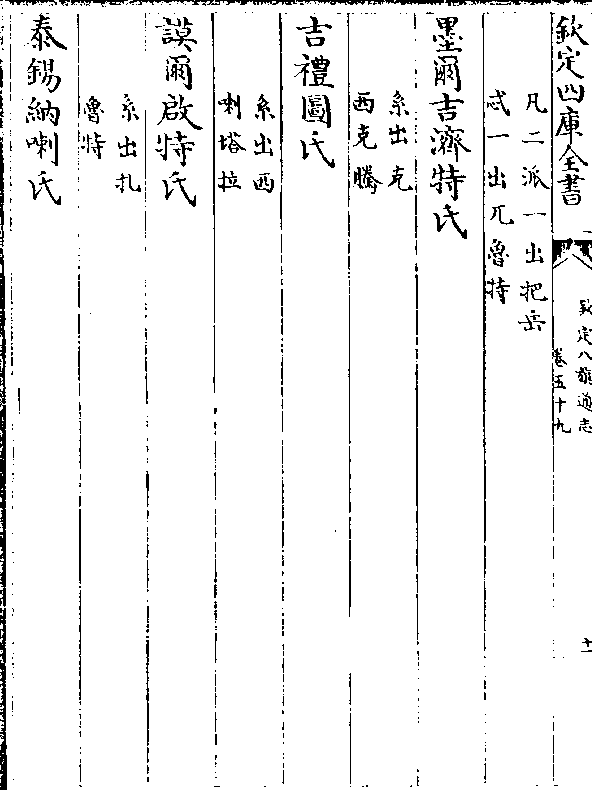 欽定四庫全書
欽定八旗通志
卷五十九
十一
凡二派一出把岳
忒一出兀魯特
墨爾吉濟特氏
系出克
西克騰
吉禮圖氏
系出西
喇塔拉
謨爾啟特氏
系出扎
魯特
泰錫納喇氏